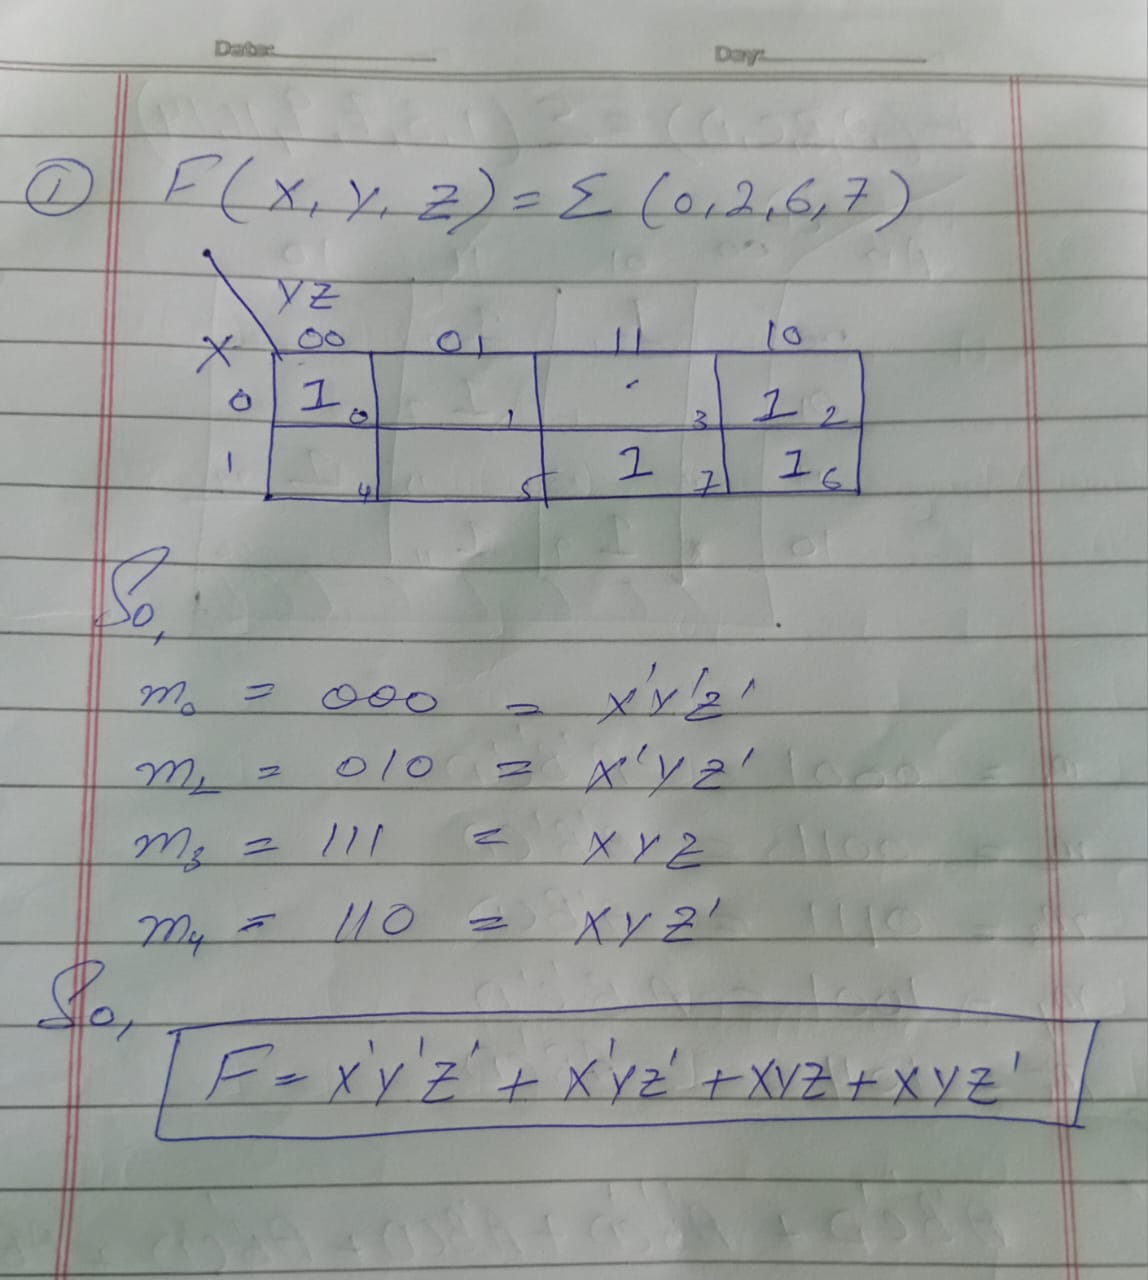 Date: Day:
① F(X, Y, Z) = Σ (0,2,6,7)
YZ
X 00 01 11 10
0 1 0 1 3 1 2
1 4 5 1 7 1 6
So,
m₀ = 000 = X'Y'Z'
m₂ = 010 = X'YZ'
m₃ = 111 = XYZ
m₄ = 110 = XYZ'
So,
F = X'Y'Z' + X'YZ' + XYZ + XYZ'